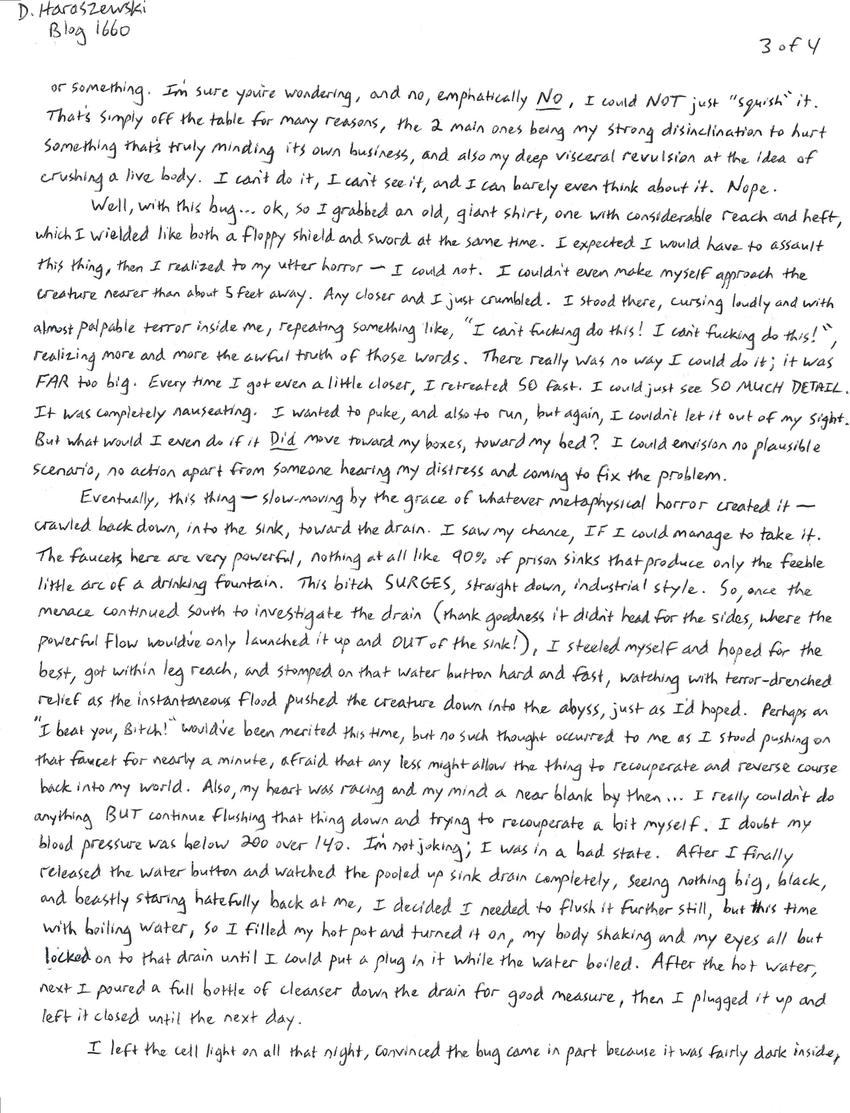 D. Haraszewski
Blog 1660
3 of 4
or something. I'm sure you're wondering, and no, emphatically NO, I could NOT just "squish" it.
That's simply off the table for many reasons, the 2 main ones being my strong disinclination to hurt
something that's truly minding its own business, and also my deep visceral revulsion at the idea of
crushing a live body. I can't do it, I can't see it, and I can barely even think about it. Nope.
Well, with this bug... ok, so I grabbed an old, giant shirt, one with considerable reach and heft,
which I wielded like both a floppy shield and sword at the same time. I expected I would have to assault
this thing, then I realized to my utter horror — I could not. I couldn't even make myself approach the
creature nearer than about 5 feet away. Any closer and I just crumbled. I stood there, cursing loudly and with
almost palpable terror inside me, repeating something like, "I can't fucking do this! I can't fucking do this!",
realizing more and more the awful truth of those words. There really was no way I could do it; it was
FAR too big. Every time I got even a little closer, I retreated SO fast. I could just see SO MUCH DETAIL.
It was completely nauseating. I wanted to puke, and also to run, but again, I couldn't let it out of my sight.
But what would I even do if it Did move toward my boxes, toward my bed? I could envision no plausible
scenario, no action apart from someone hearing my distress and coming to fix the problem.
Eventually, this thing — slow-moving by the grace of whatever metaphysical horror created it —
crawled back down, into the sink, toward the drain. I saw my chance, IF I could manage to take it.
The faucets here are very powerful, nothing at all like 90% of prison sinks that produce only the feeble
little arc of a drinking fountain. This bitch SURGES, straight down, industrial style. So, once the
menace continued south to investigate the drain (thank goodness it didn't head for the sides, where the
powerful flow would've only launched it up and OUT of the sink!), I steeled myself and hoped for the
best, got within leg reach, and stomped on that water button hard and fast, watching with terror-drenched
relief as the instantaneous flood pushed the creature down into the abyss, just as I'd hoped. Perhaps an
"I beat you, Bitch!" would've been merited this time, but no such thought occurred to me as I stood pushing on
that faucet for nearly a minute, afraid that any less might allow the thing to recouperate and reverse course
back into my world. Also, my heart was racing and my mind a near blank by then... I really couldn't do
anything BUT continue flushing that thing down and trying to recouperate a bit myself. I doubt my
blood pressure was below 200 over 140. I'm not joking; I was in a bad state. After I finally
released the water button and watched the pooled up sink drain completely, seeing nothing big, black,
and beastly staring hatefully back at me, I decided I needed to flush it further still, but this time
with boiling water, so I filled my hot pot and turned it on, my body shaking and my eyes all but
locked on to that drain until I could put a plug in it while the water boiled. After the hot water,
next I poured a full bottle of cleanser down the drain for good measure, then I plugged it up and
left it closed until the next day.
I left the cell light on all that night, convinced the bug came in part because it was fairly dark inside,